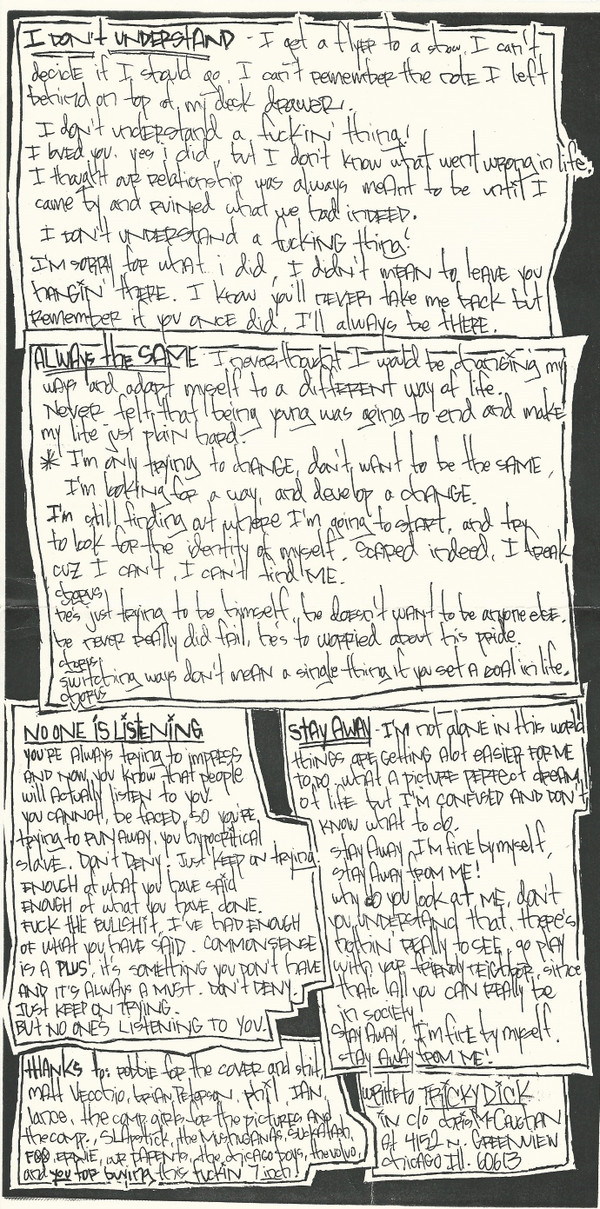 I DON't UNDERSTAND - I get a flyer to a show, I can't
decide if I should go. I can't remember the note I left
behind on top of my desk drawer.
I don't understand a fuckin' thing!
I loved you. yes i did, but I don't know what went wrong in life.
I thought our relationship was always meant to be until I
came by and ruined what we had indeed.
I DON't UNDERSTAND a fucking thing!
I'm SORRY for what i did, I didn't MEAN to leave you
hangin' there. I know you'll never take me back but
remember if you once did, I'll always be there.
ALWAYS the SAME I never thought I would be changing my
ways and adapt myself to a different way of life.
Never felt that being young was going to end and make
my life just plain hard.
* I'm only trying to change, don't want to be the same,
I'm looking for a way, and develop a change.
I'm still finding out where I'm going to start, and try
to look for the identity of myself. Scared indeed, I freak
cuz I can't, I can't find ME.
chorus
he's just trying to be himself, he doesn't want to be anyone else.
he never really did fail, he's to worried about his pride.
chorus
switching ways don't mean a single thing if you set a goal in life.
chorus
NO ONE iS LiStENING
you're always trying to impress
and now you know that people
will actually listen to you.
you cannot, be faced, so you're
trying to run away, you hypocritical
slave. Don't deny! Just keep on trying.
enough of what you have said
enough of what you have done.
Fuck the bullshit, I've had enough
of what you have said. Commonsense
is a PLUS, it's something you don't have
and it's always a must. Don't deny.
Just keep on trying.
But no one's listening to you.
StAY AWAY - I'm not alone in this world
things are getting alot easier for me
to do. what a picture perfect dream,
of life but I'm confused and don't
know what to do.
Stay Away, I'm fine by myself,
Stay Away from me!
why do you look at me, don't
you understand that, there's
nothin' really to see, go play
with your friendly neighbor, since
thats all you can really be
in society.
Stay Away, I'm fine by myself.
Stay Away from me!
tHANKS to: Robbie for the cover and shit,
Matt Vecchio, Brian Peterson, phil, IAN,
lance, the comp girls for the pictures and
the comp., SLAPstick, the Mushuganas,
ERNIE, our parents, the chicago boys, the volvo,
and you for buying this fuckin 7 inch!
write to TRiCKY DiCK
in c/o chris McCaughan
at 4152 N. Greenview
chicago Ill. 60613